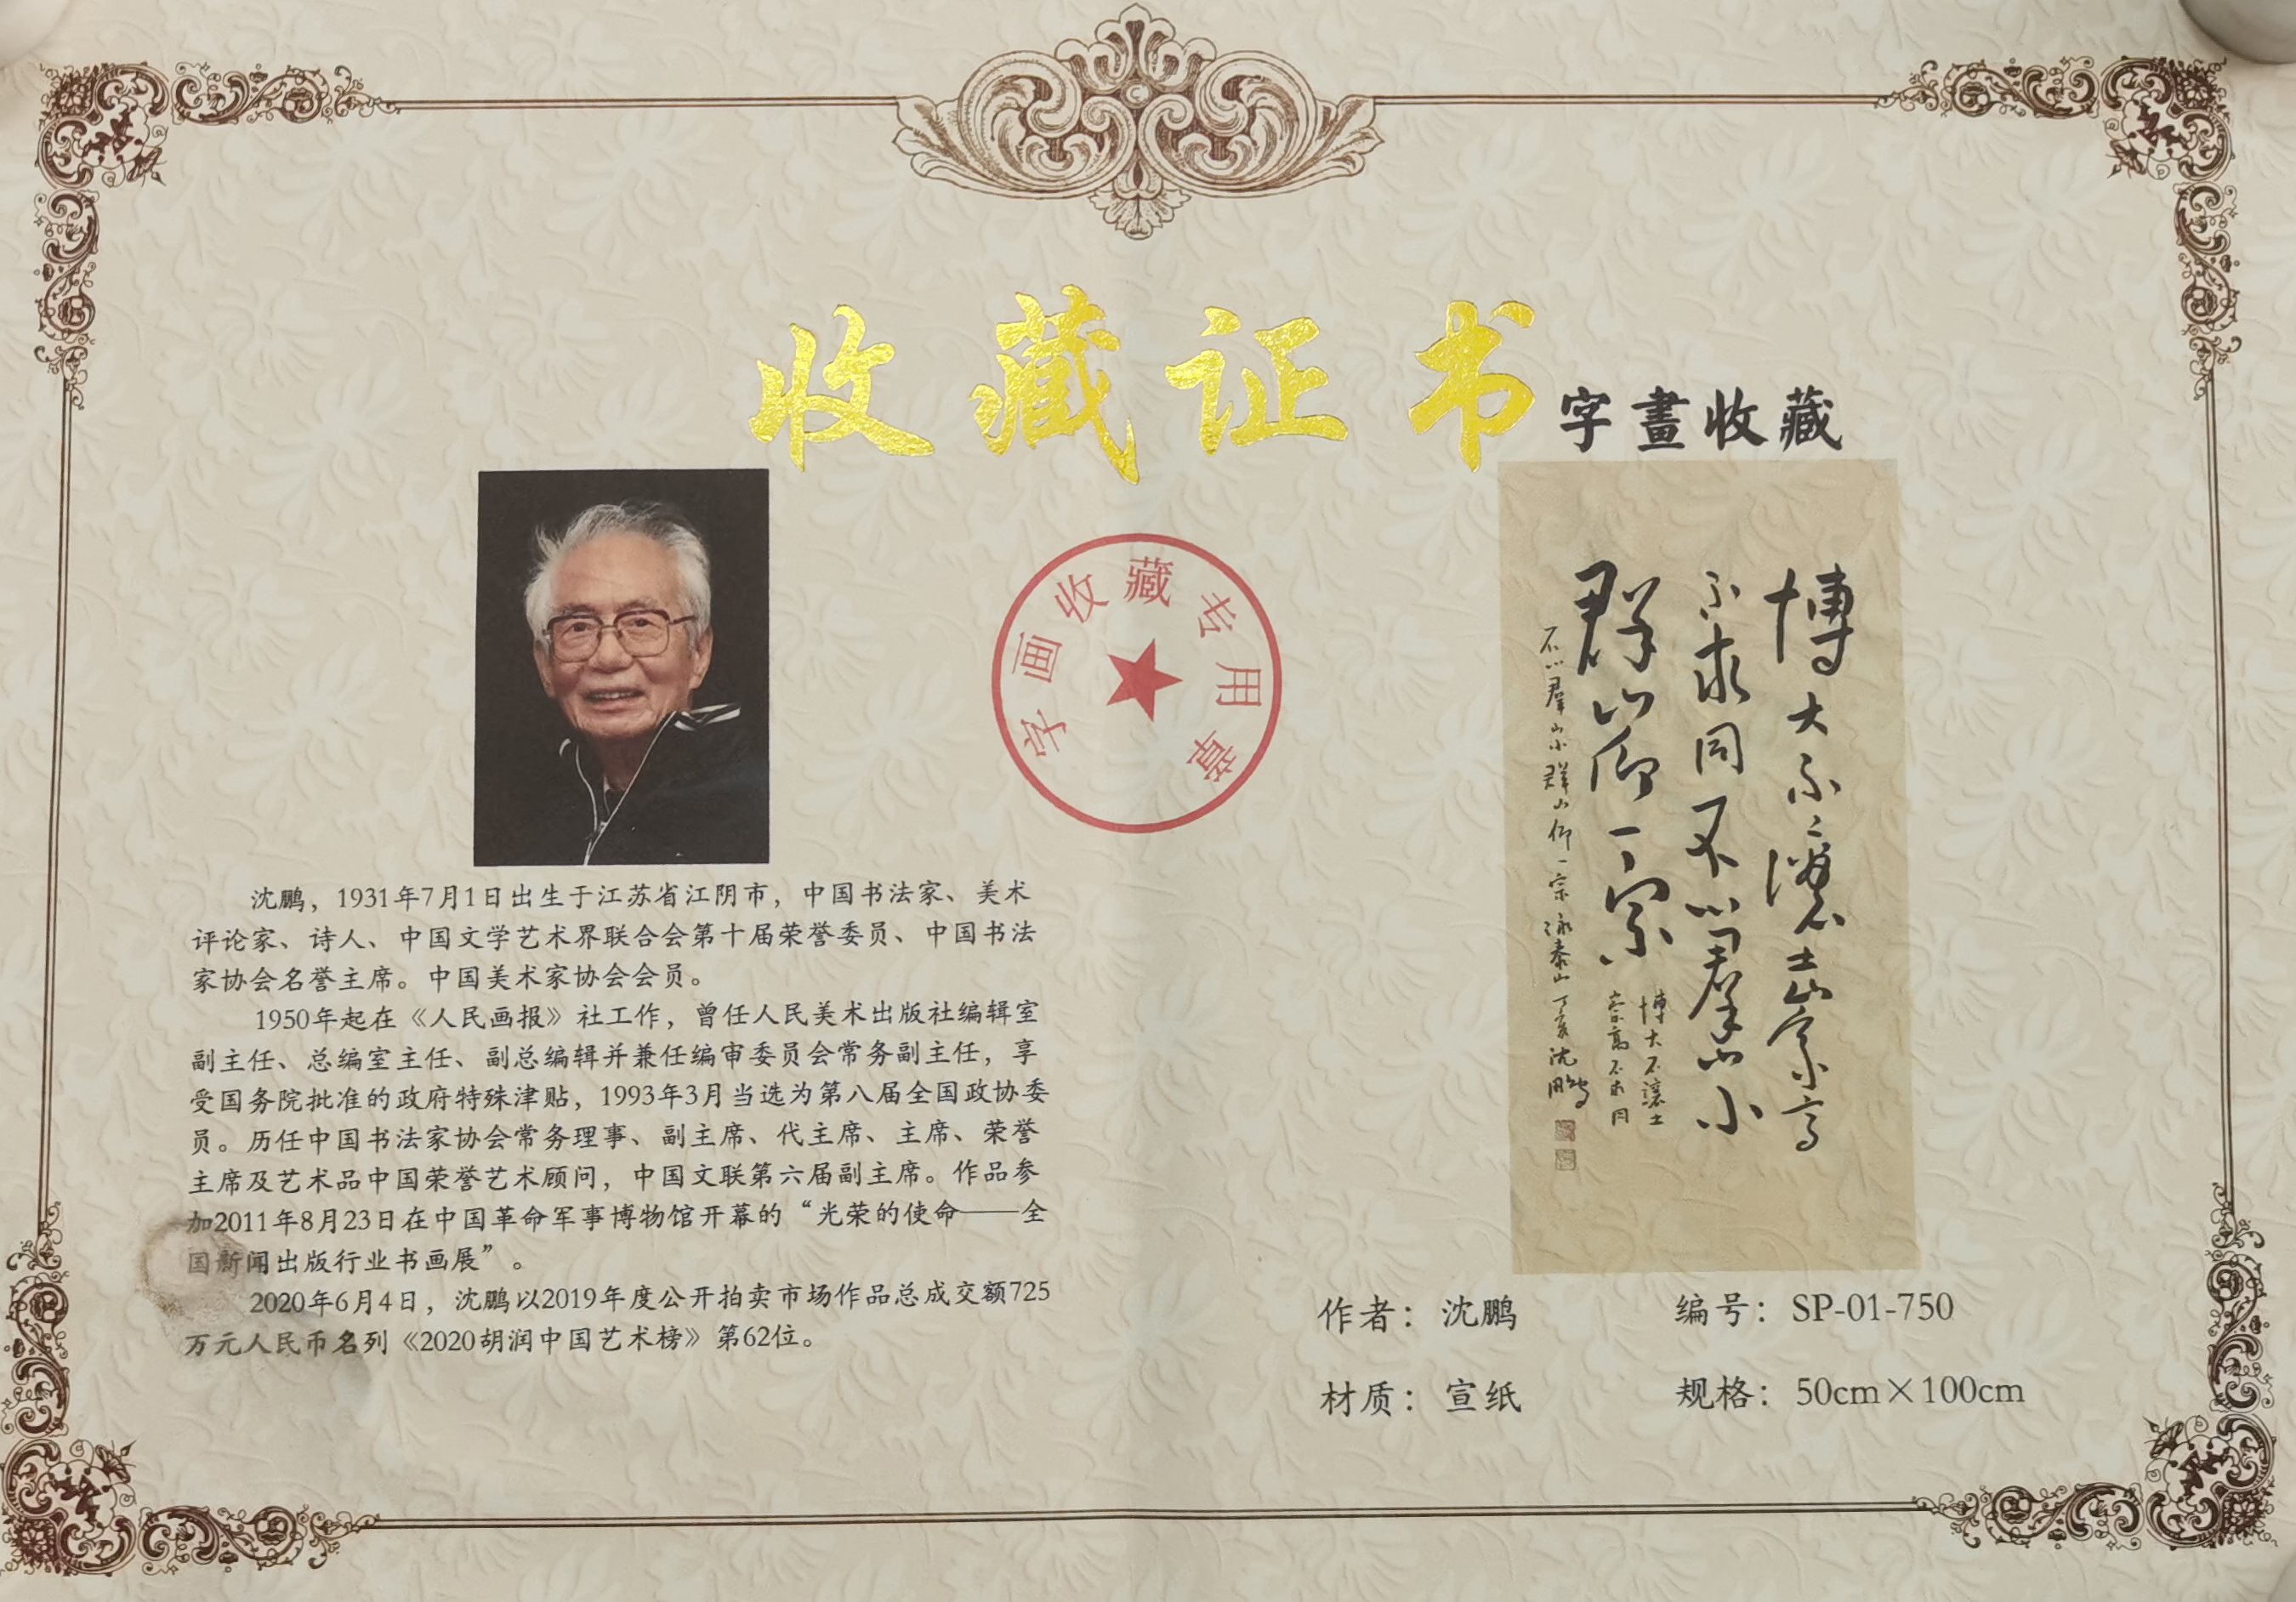 收藏证书
字畫收藏
字画收藏专用章
沈鹏，1931年7月1日出生于江苏省江阴市，中国书法家、美术
评论家、诗人、中国文学艺术界联合会第十届荣誉委员、中国书法
家协会名誉主席。中国美术家协会会员。
1950年起在《人民画报》社工作，曾任人民美术出版社编辑室
副主任、总编室主任、副总编辑并兼任编审委员会常务副主任，享
受国务院批准的政府特殊津贴，1993年3月当选为第八届全国政协委
员。历任中国书法家协会常务理事、副主席、代主席、主席、荣誉
主席及艺术品中国荣誉艺术顾问，中国文联第六届副主席。作品参
加2011年8月23日在中国革命军事博物馆开幕的“光荣的使命——全
国新闻出版行业书画展”。
2020年6月4日，沈鹏以2019年度公开拍卖市场作品总成交额725
万元人民币名列《2020胡润中国艺术榜》第62位。
博大不讓土崇高
不求同不以羣山小
群山仰一宗
博大不讓土
崇高不求同
不以羣山小群山仰一宗 泳泰山 丁亥 沈鵬
作者：沈鹏
编号：SP-01-750
材质：宣纸
规格：50cm×100cm